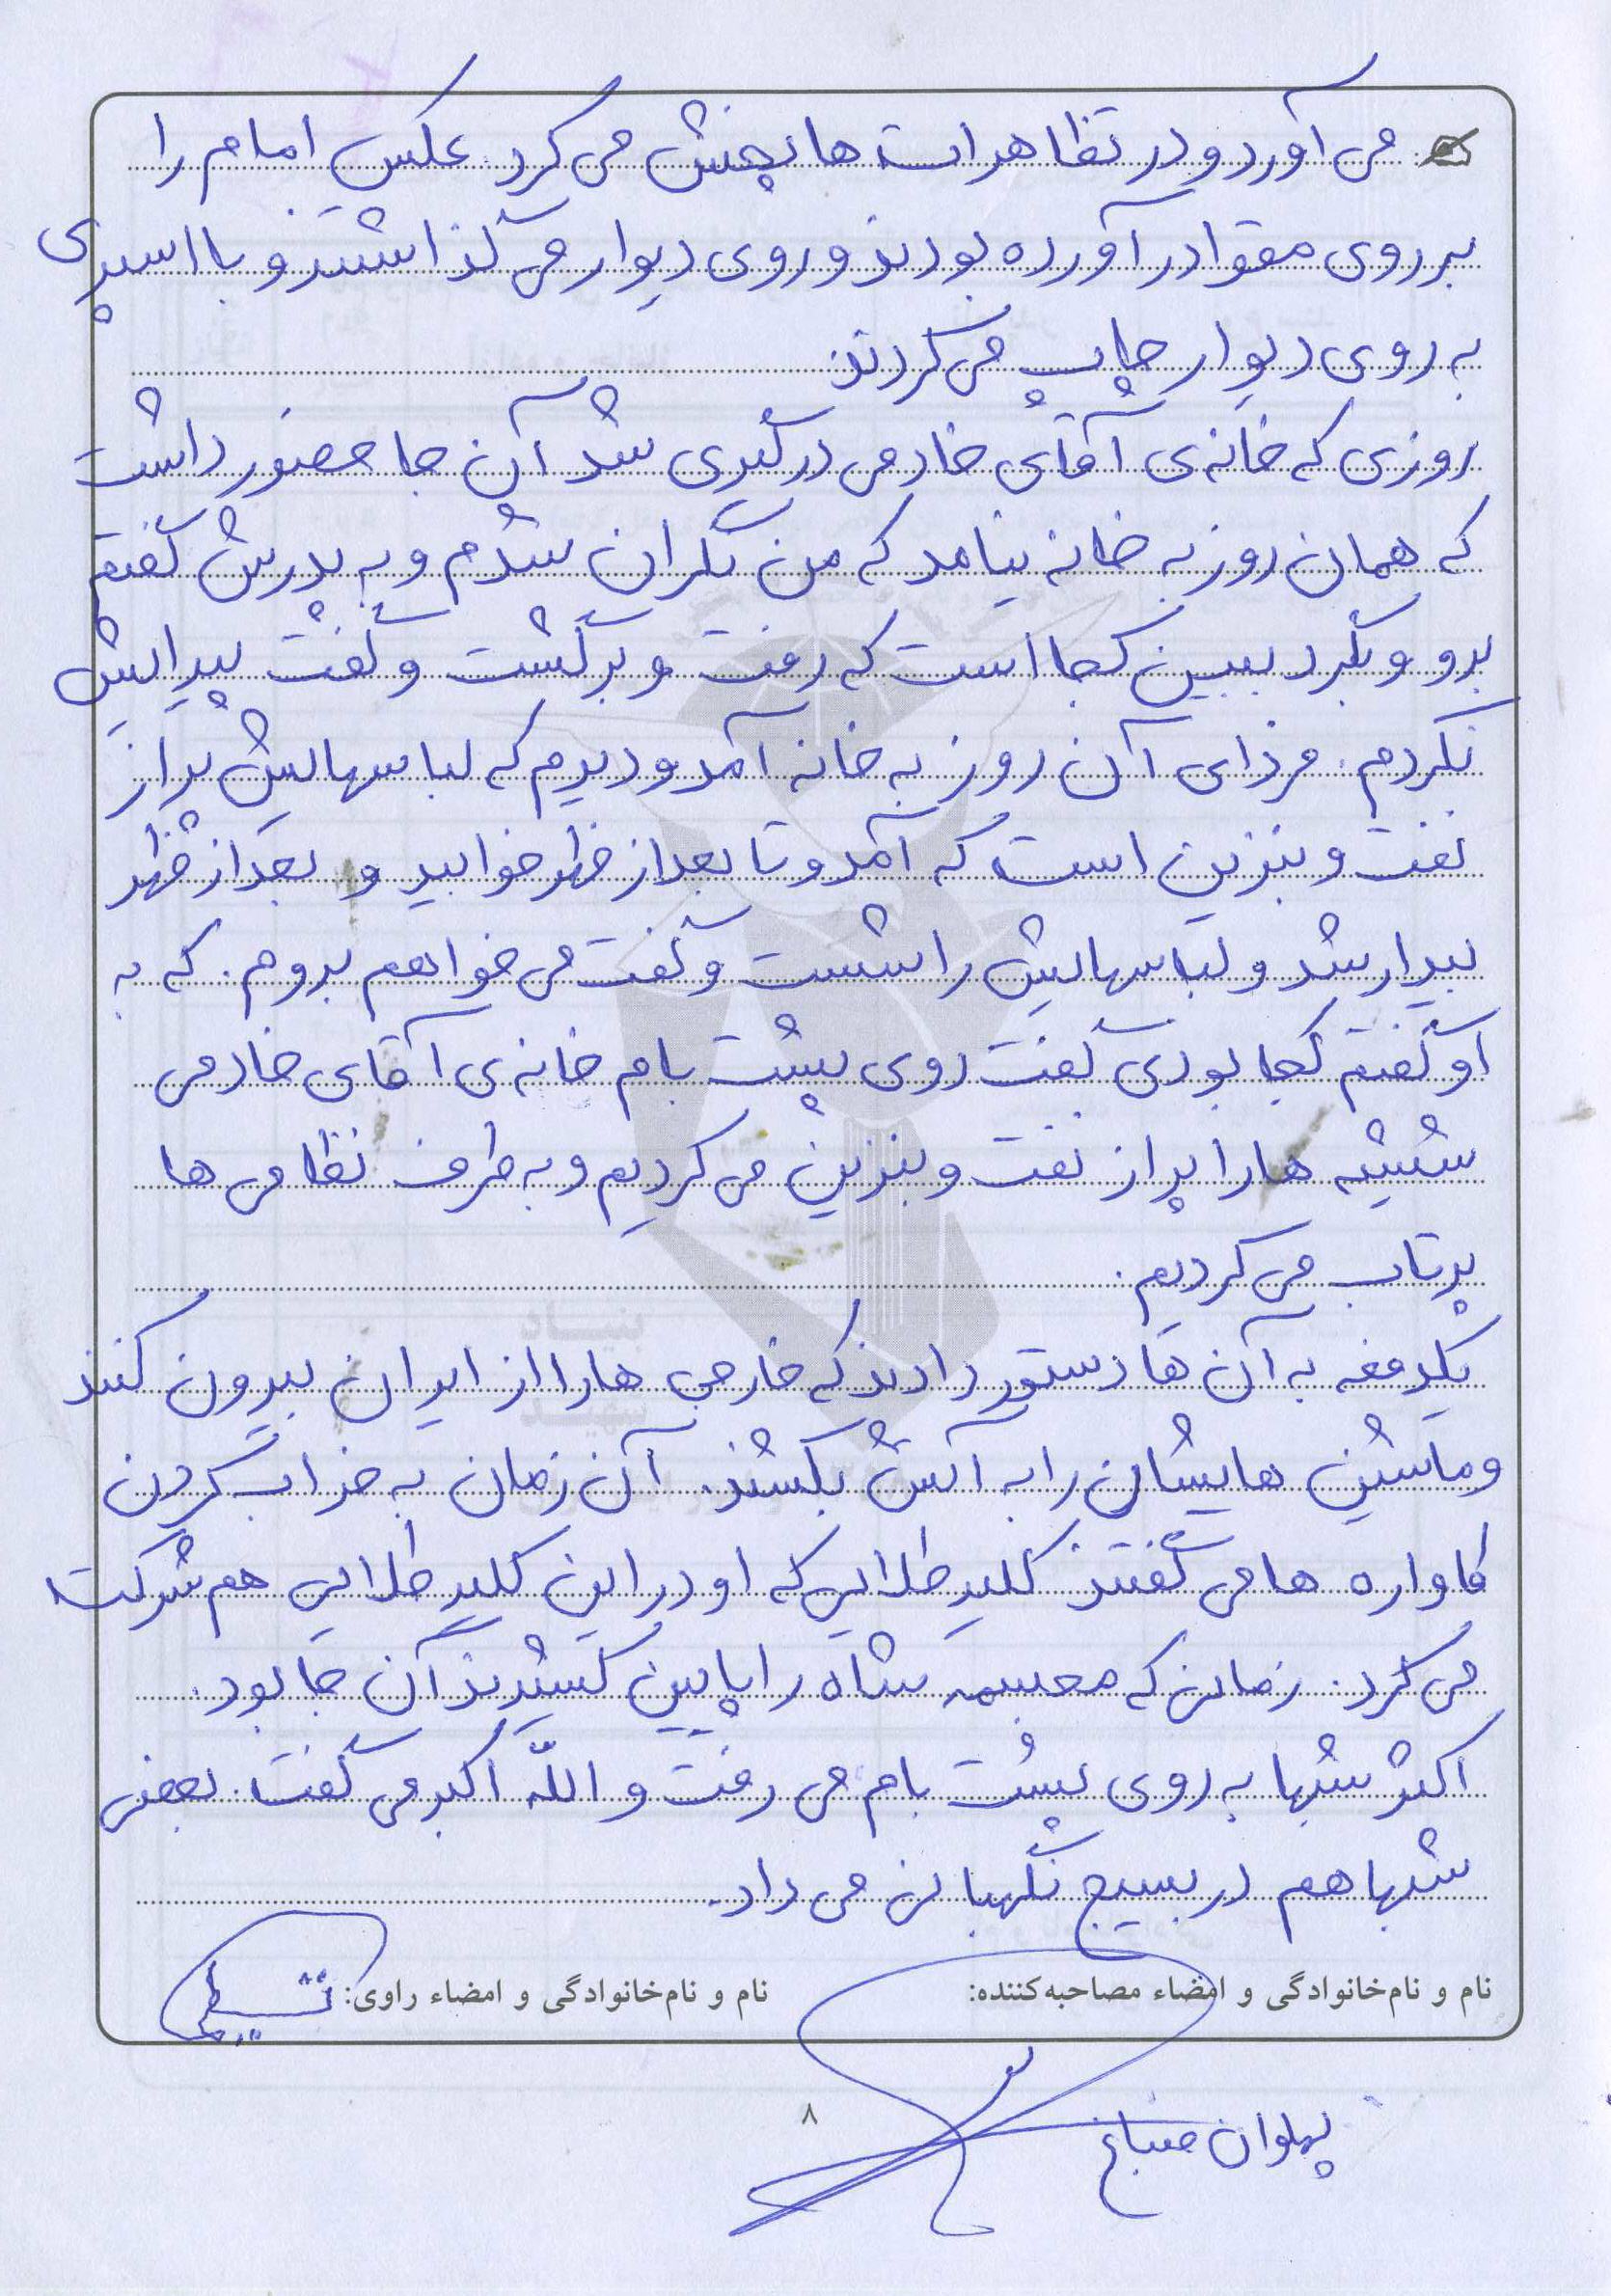 می آورد و در تظاهرات ها پخش می کرد. عکس امام را
بر روی مقوا در آورده بودند و روی دیوار می گذاشتند و با اسپری
به روی دیوار چاپ می کردند.
روزی که خانه ی آقای خادمی درگیری شد آن جا حضور داشت
که همان روز به خانه نیامد که من نگران شدم و به پدرش گفتم
برو و بگرد ببین کجا است که رفت و برگشت و گفت پیدایش
نکردم. فردای آن روز به خانه آمد و دیدم که لباسهایش پر از
نفت و بنزین است که آمد و تا بعد از ظهر خوابید و بعد از ظهر
بیدار شد و لباسهایش را شست و گفت می خواهم بروم. که به
او گفتم کجا بودی گفت روی پشت بام خانه ی آقای خادمی
شیشه ها را پر از نفت و بنزین می کردیم و به طرف نظامی ها
پرتاب می کردیم.
یکدفعه به آن ها دستور دادند که خارجی ها را از ایران بیرون کنند
و ماشین هایشان را به آتش بکشند. آن زمان به خراب کردن
کاواره ها می گفتند کلید طلایی که او در این کلید طلایی هم شرکت
می کرد. زمانی که مجسمه شاه را پایین کشیدند آن جا بود.
اکثر شبها به روی پشت بام می رفت و اللّه اکبر می گفت. بعضی
شبها هم در بسیج نگهبانی می داد.
نام و نام‌خانوادگی و امضاء مصاحبه‌کننده:
نام و نام‌خانوادگی و امضاء راوی:
پهلوان صباغ
۸
بنیاد
شهید